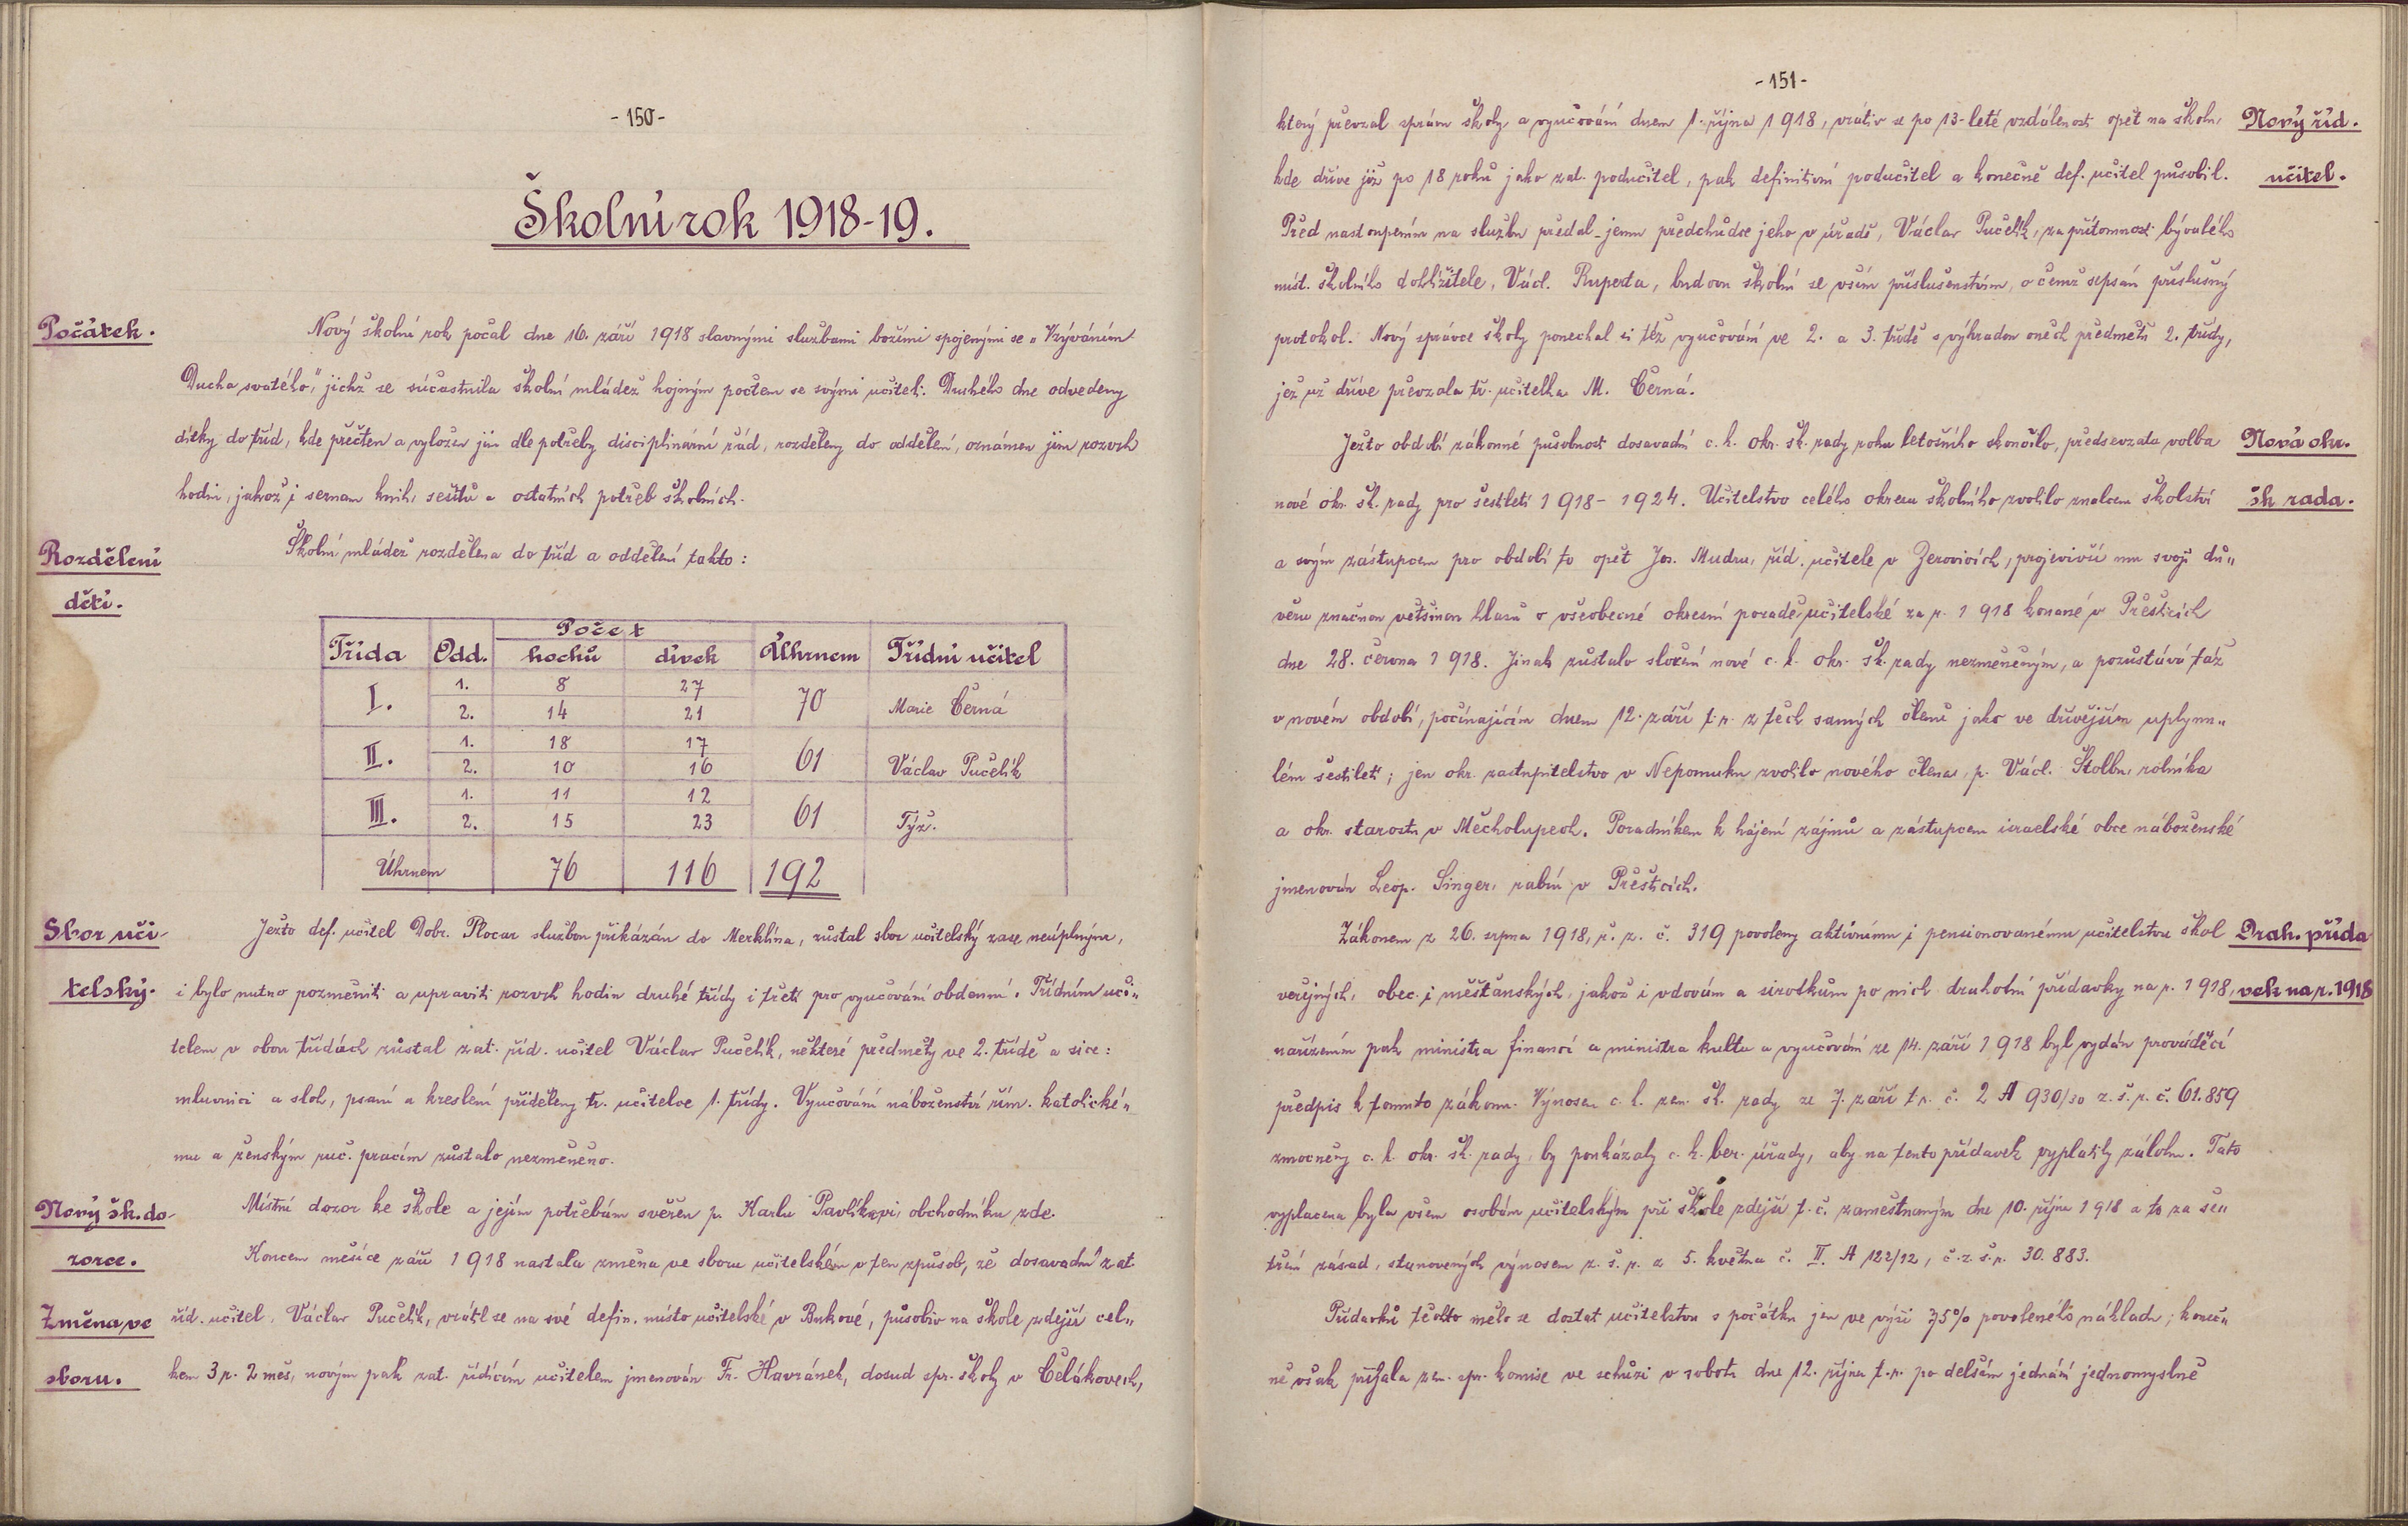 - 150 -
Školní rok 1918-19.
Počátek.
Nový školní rok počal dne 16. září 1918 slavnými službami božími spojenými se „Vzýváním
Ducha svatého," jichž se súčastnila školní mládež hojným počtem se svými učiteli. Druhého dne odvedeny
dítky do tříd, kde přečten a vyložen jim dle potřeby disciplinární řád, rozděleny do oddělení, oznámen jim rozvrh
hodin, jakož i seznam knih, sešitů a ostatních potřeb školních.
Rozdělení
dětí.
Školní mládež rozdělena do tříd a oddělení takto:
Třída Odd. Počet Úhrnem Třídní učitel
hochů dívek
I. 1. 8 27 70 Marie Černá
2. 14 21
II. 1. 18 17 61 Václav Pučelík
2. 10 16
III. 1. 11 12 61 Týž.
2. 15 23
Úhrnem 76 116 192
Sbor uči-
telský.
Ježto def. učitel Dobr. Plocar službou přikázán do Merklína, zůstal sbor učitelský zase neúplným,
i bylo nutno pozměniti a upraviti rozvrh hodin druhé třídy i třetí pro vyučování obdenní. Třídním uči„
telem v obou třídách zůstal zat. říd. učitel Václav Pučelík, některé předměty ve 2. třídě a sice:
mluvnici a sloh, psaní a kreslení přiděleny tř. učitelce 1. třídy. Vyučování náboženství řím. katolické„
mu a ženským ruč. pracím zůstalo nezměněno.
Nový šk. do-
zorce.
Místní dozor ke škole a jejím potřebám svěřen p. Karlu Pavlíkovi, obchodníku zde.
Koncem měsíce září 1918 nastala změna ve sboru učitelském v ten způsob, že dosavadní zat.
Změna ve
sboru.
říd. učitel, Václav Pučelík, vrátil se na své defin. místo učitelské v Bukové, působiv na škole zdejší cel„
kem 3 r. 2 měs., novým pak zat. řídícím učitelem jmenován Fr. Havránek, dosud spr. školy v Čelákovech,
- 151 -
který převzal správu školy a vyučování dnem 1. října 1918, vrátiv se po 13-leté vzdálenosti opět na školu,
kde dříve již po 18 roků jako zat. podučitel, pak definitivní podučitel a konečně def. učitel působil.
Nový říd.
učitel.
Před nastoupením na službu předal jemu předchůdce jeho v úřadě, Václav Pučelík, za přítomnosti bývalého
míst. školního dohlížitele, Václ. Ruperta, budovu školní se vším příslušenstvím, o čemž sepsán příslušný
protokol. Nový správce školy ponechal si též vyučování ve 2. a 3. třídě s výhradou oněch předmětů 2. třídy,
jež už dříve převzala tř. učitelka M. Černá.
Ježto období zákonné působnosti dosavadní c. k. okr. šk. rady roku letošního skončilo, předsevzata volba
Nová okr.
šk rada.
nové okr. šk. rady pro šestiletí 1918-1924. Učitelstvo celého okresu školního zvolilo znalcem školství
a svým zástupcem pro období to opět Jos. Mudru, říd. učitele v Žerovicích, projevivší mu svoji dů„
věru značnou většinou hlasů o všeobecné okresní poradě učitelské za r. 1918 konané v Přešticích
dne 28. června 1918. Jinak zůstalo složení nové c. k. okr. šk. rady nezměněným, a pozůstává táž
v novém období, počínajícím dnem 12. září t. r. z těch samých členů jako ve dřívějším uplynu„
lém šestiletí; jen okr. zastupitelstvo v Nepomuku zvolilo nového člena, p. Václ. Štolbu, rolníka
a okr. starostu v Měcholupech. Poradníkem k hájení zájmů a zástupcem israelské obce náboženské
jmenován Leop. Singer, rabín v Přešticích.
Zákonem z 26. srpna 1918, ř. z. č. 319 povoleny aktivnímu i pensionovanému učitelstvu škol
Drah. přída
vek na r. 1918
veřejných, obec. i měšťanských, jakož i vdovám a sirotkům po nich drahotní přídavky na r. 1918,
nařízením pak ministra financí a ministra kultu a vyučování ze 14. září 1918 byl vydán prováděcí
předpis k tomuto zákonu. Výnosem c. k. zem. šk. rady ze 7. září t. r. č. 2 A 930/30 z. š. r. č. 61.859
zmocněny c. k. okr. šk. rady, by poukázaly c. k. ber. úřady, aby na tento přídavek vyplatily zálohu. Tato
vyplacena byla všem osobám učitelským při škole zdejší t. č. zaměstnaným dne 10. října 1918 a to za še„
tření zásad, stanovených výnosem z. š. r. z 5. května č. II. A 122/12, č. z. š. r. 30.883.
Přídavků těchto mělo se dostat učitelstvu s počátku jen ve výši 75% povoleného nákladu; koneč„
ně však přijala zem. spr. komise ve schůzi v sobotu dne 12. října t. r. po delším jednání jednomyslně